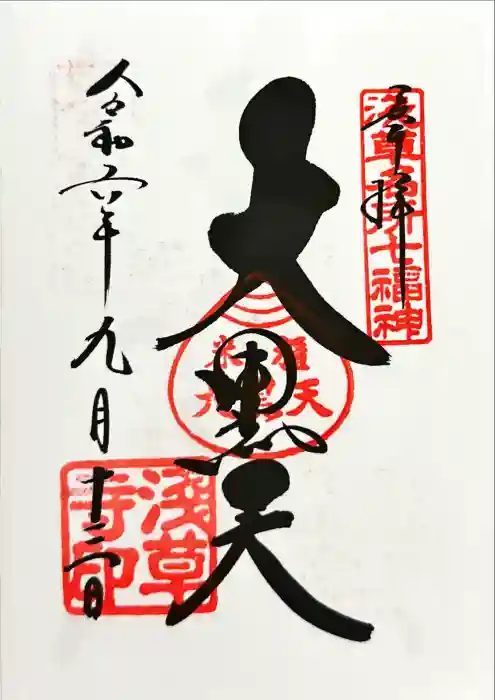 奉拝
浅草名所七福神
大黒天
令和六年九月十二日
淺草寺印